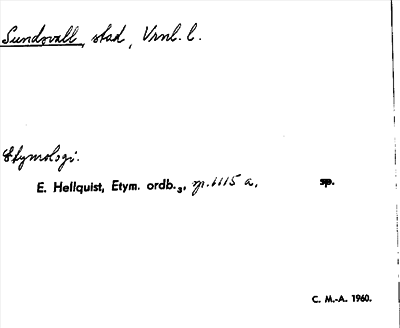 Sundsvall, stad, Vrnl. l.
Etymologi.
E. Hellquist, Etym. ordb.₃, p. 1115 a, sp.
C. M.-A. 1960.